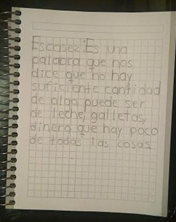 Escasez: Es una
palabra que nos
dice que no hay
suficiente cantidad
de algo puede ser
de leche, galletas,
dinero que hay poco
de todas las cosas